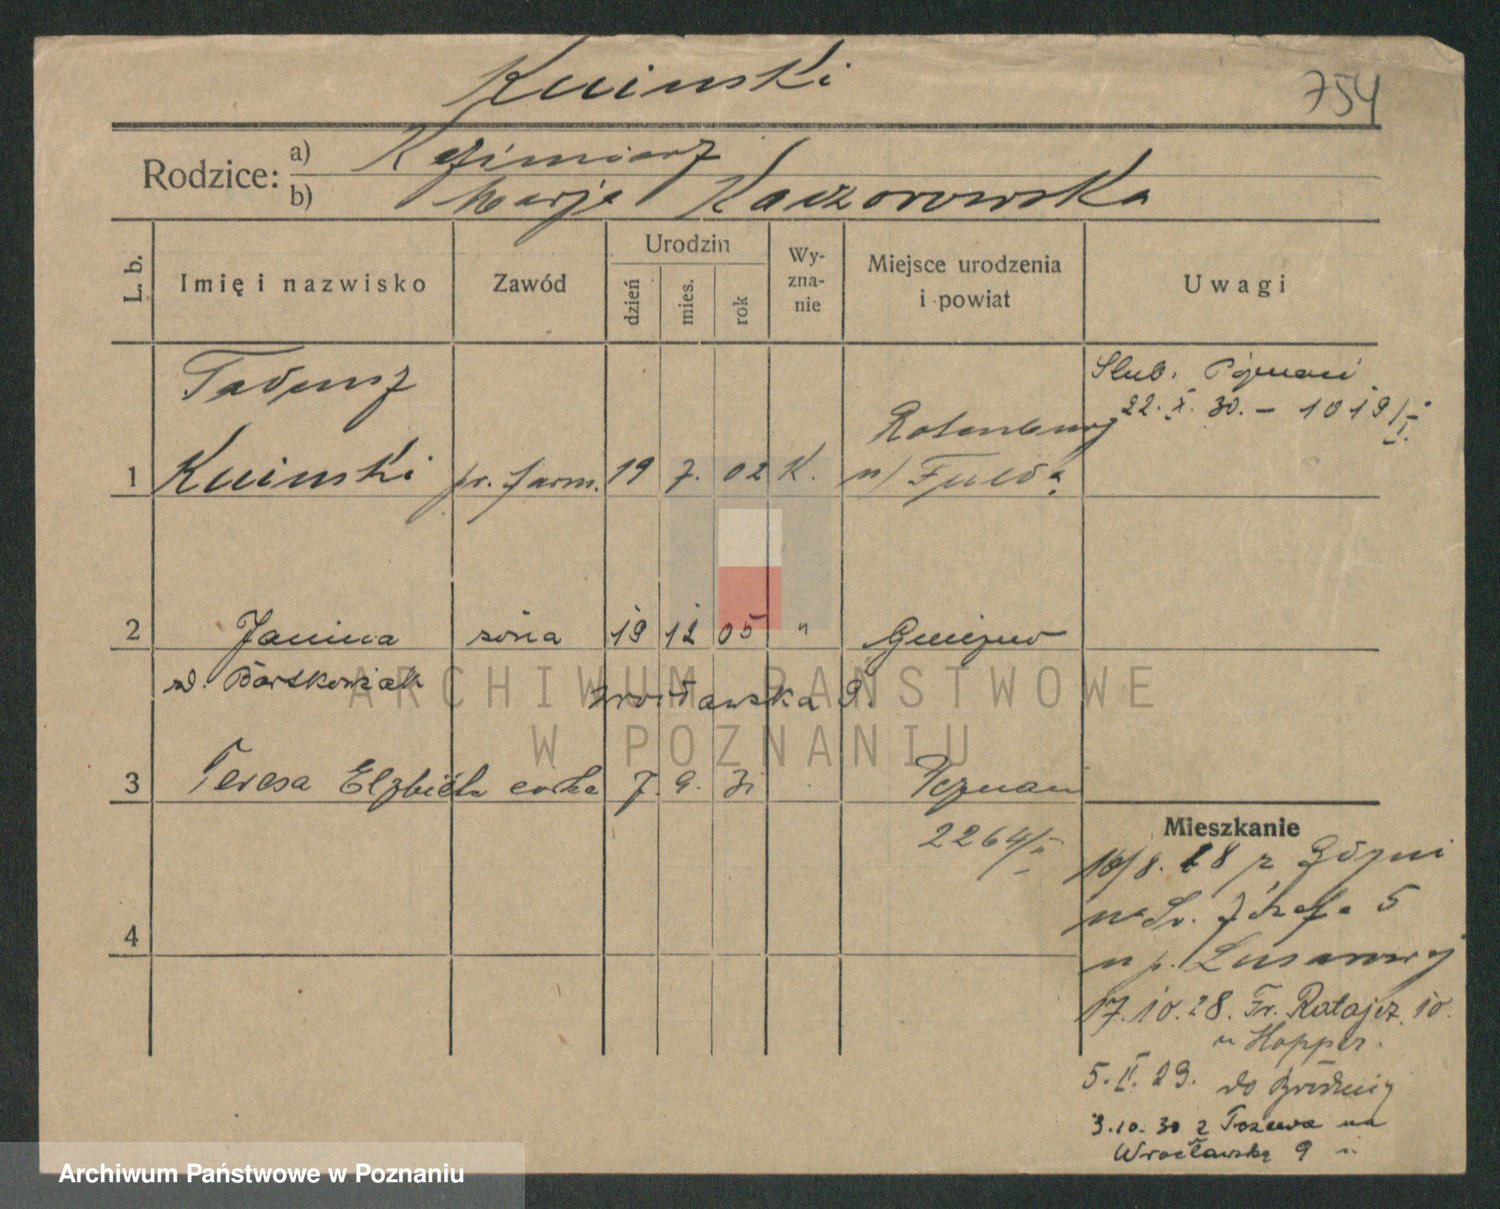 Kuinski
754
Rodzice: a) Kazimierz
b) Marja Kaczorowska
L. b.
Imię i nazwisko
Zawód
Urodzin
dzień
mies.
rok
Wy-
zna-
nie
Miejsce urodzenia
i powiat
Uwagi
Tadeusz
Ślub. Poznań
22. X. 30. – 1019/I.
Rotenburg
1 Kuinski pr. farm. 19 7. 02 K. n/ Fulda
2 Janina żona 19 12 05 " Gniezno
Bartkowiak
Wrocławska 9.
3 Teresa Elżbieta córka 7. 9. 31 Poznań
2264/II
Mieszkanie
18/8. 28 z
na Św. Józefa 5
4
u p.
17. 10. 28. Fr. Ratajcz. 10.
u Hopper.
5. II. 29. do Brodnicy
3.10.30 z Tczewa na
Wrocławską 9
ARCHIWUM PAŃSTWOWE
W POZNANIU
Archiwum Państwowe w Poznaniu